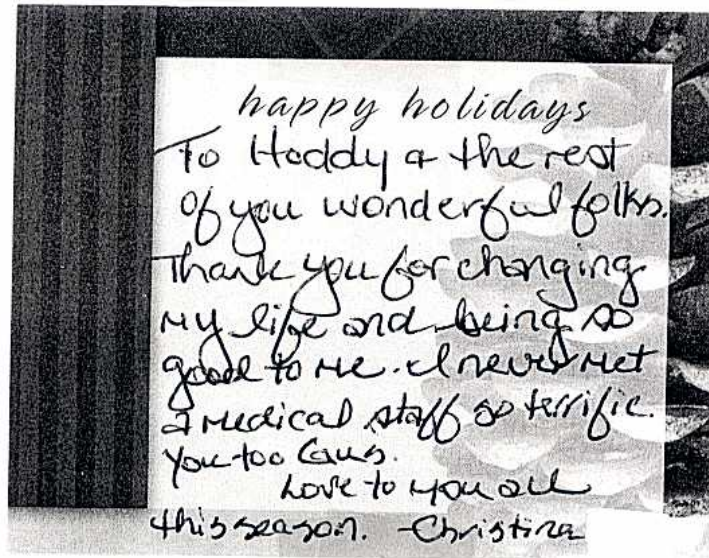 happy holidays
To Hoddy & the rest
of you wonderful folks.
Thank you for changing
my life and being so
good to me. I never met
a medical staff so terrific.
You too
Love to you all
this season. -Christina